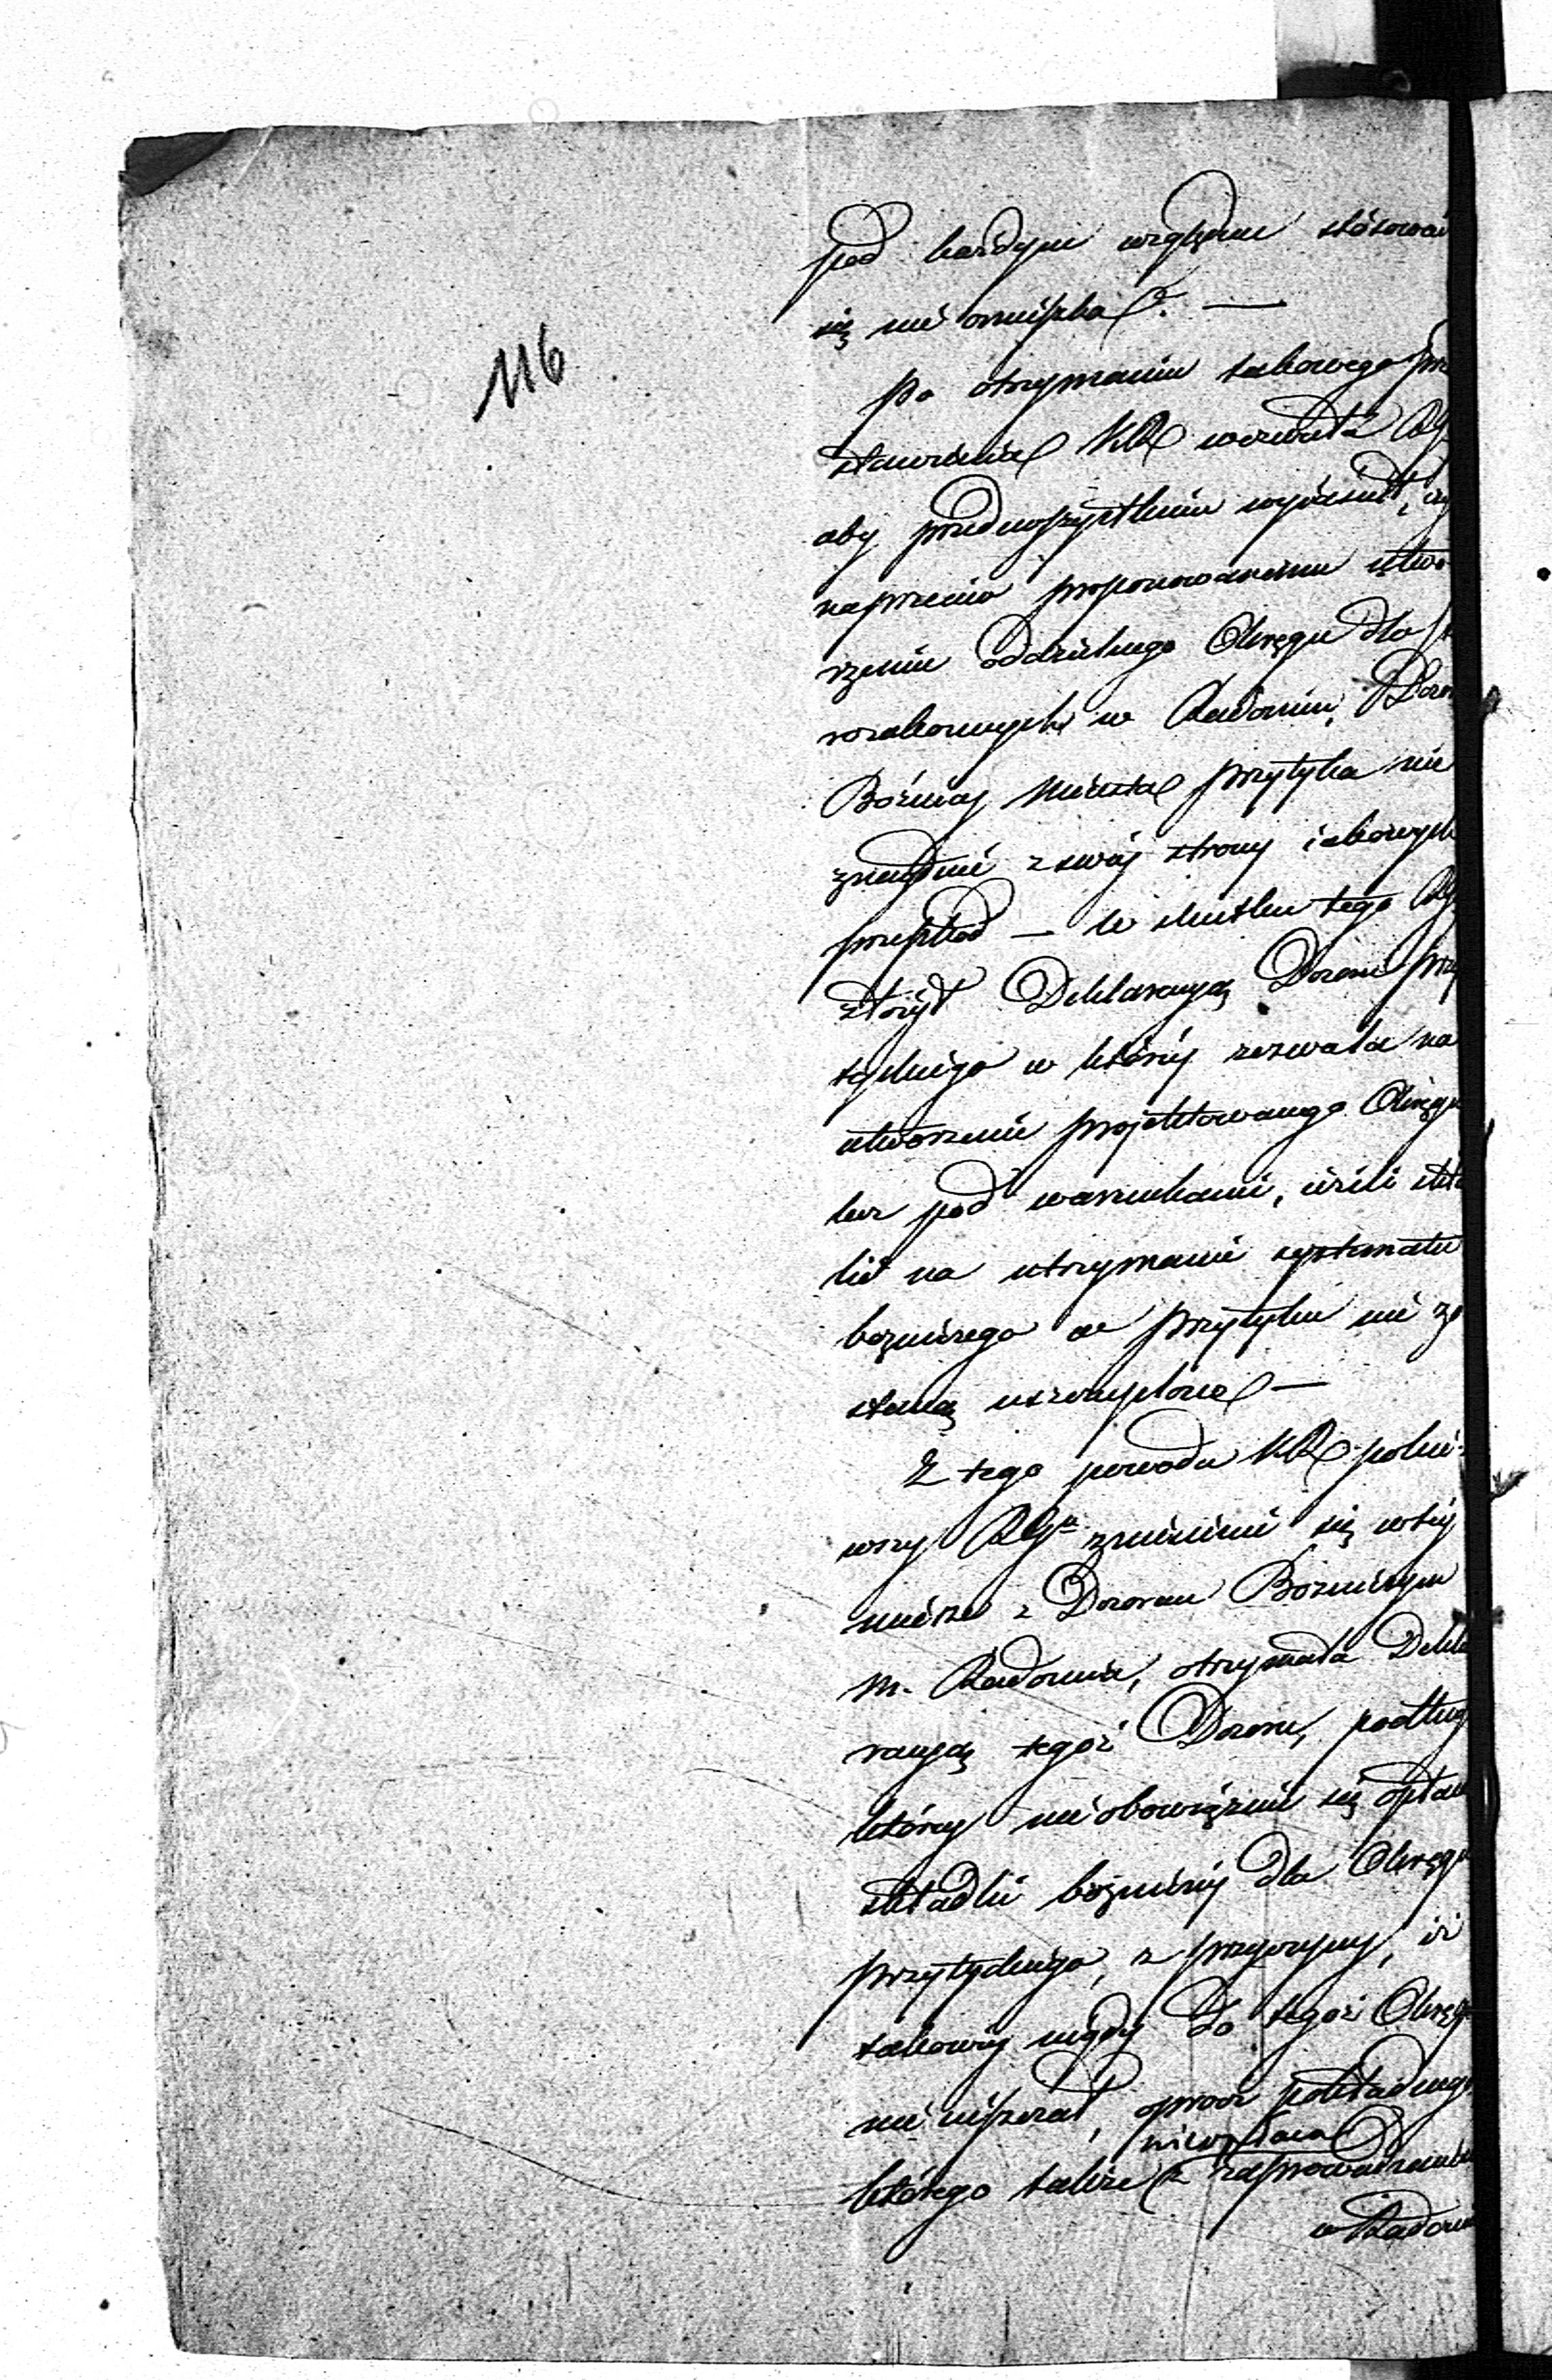 116
pod każdym względem stósowai
się nie omięszka. —
Po otrzymaniu takowego prze
stawienia KR wezwała RG
aby przedewszystkiem wyjaśnił, czy
naprzeciw proponowanemu utwo
rzeniu oddzielnego Okręgu dla
rozakonnych w Radomiu, Dozo
Bóźniczy Miasta Przytyka nie
znajdzie z swéj strony iakowych
przeszkód — W skutku tego RG
złożył Deklaracyą Dozoru Przy
tyckiego w któréj zezwala na
utworzenie projektowanego Okręgu
lecz pod warunkami, iżeli skła
ki na utrzymanie systematu
bożniczego w Przytyku nie zo
staną uszczuplone —
Z tego powodu KR poleci-
wszy RGu zniesienie się w téj
mierze z Dozorem Bożniczym
m. Radomia, otrzymała Dekla
racyą tegoż Dozoru, podług
któréj nie obowiązuie się opłac
składki bóżniczéj dla Okręgu
Przytyckiego, z przyczyny, iż
takowéj nigdy do tegoż Okręgu
nie uiszczał, oprócz pokładnego
niewpłaca
którego także z zaprowadzeniem
w Radomi